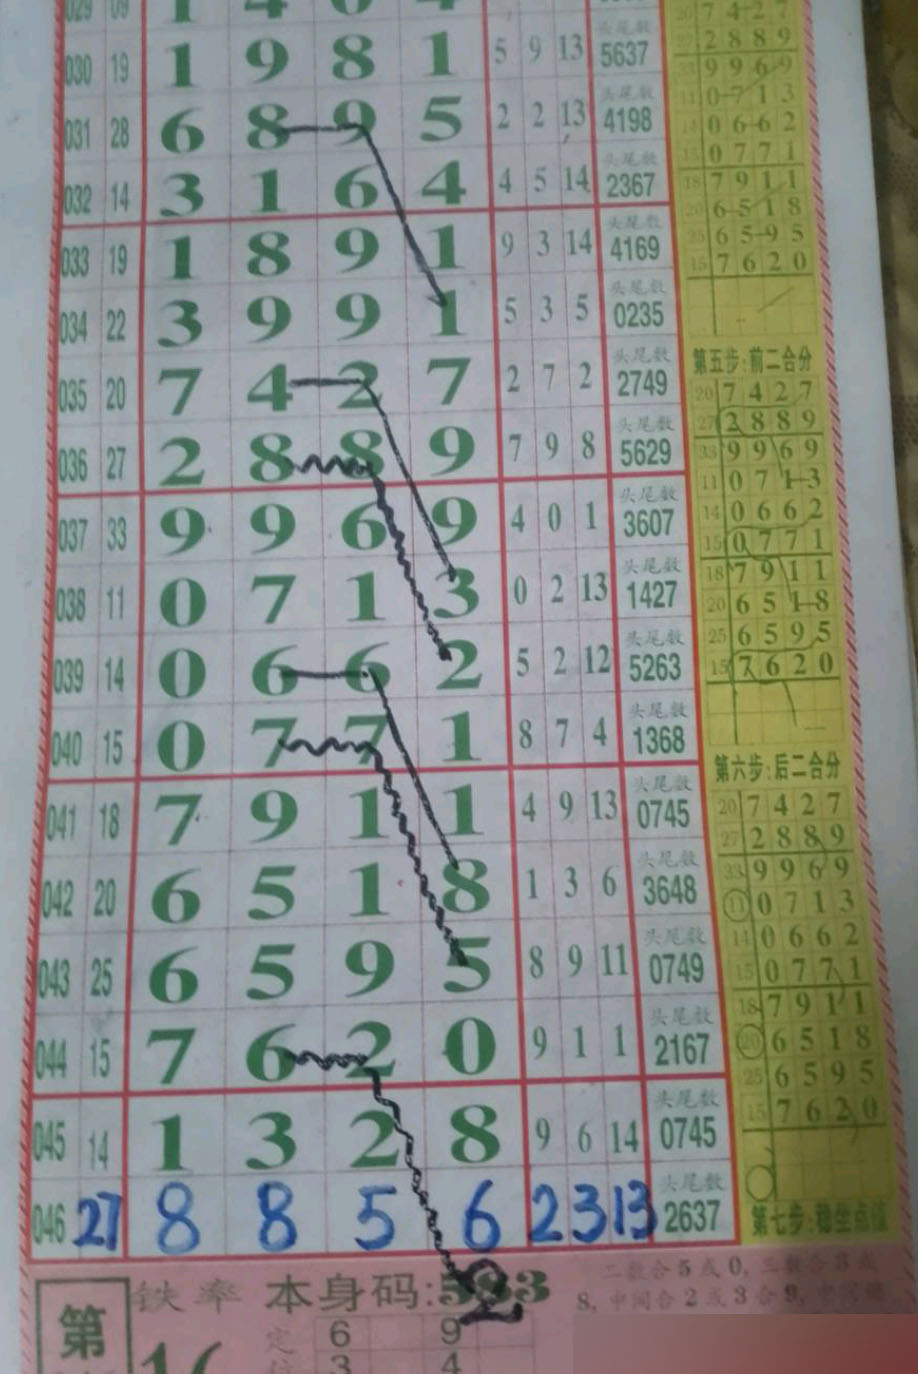 029 09 1 4 0 4
030 19 1 9 8 1 5 9 13 头尾数 5637
031 28 6 8 9 5 2 2 13 头尾数 4198
032 14 3 1 6 4 4 5 14 头尾数 2367
033 19 1 8 9 1 9 3 14 头尾数 4169
034 22 3 9 9 1 5 3 5 头尾数 0235
035 20 7 4 2 7 2 7 2 头尾数 2749
036 27 2 8 8 9 7 9 8 头尾数 5629
037 33 9 9 6 9 4 0 1 头尾数 3607
038 11 0 7 1 3 0 2 13 头尾数 1427
039 14 0 6 6 2 5 2 12 头尾数 5263
040 15 0 7 7 1 8 7 4 头尾数 1368
041 18 7 9 1 1 4 9 13 头尾数 0745
042 20 6 5 1 8 1 3 6 头尾数 3648
043 25 6 5 9 5 8 9 11 头尾数 0749
044 15 7 6 2 0 9 1 1 头尾数 2167
045 14 1 3 2 8 9 6 14 头尾数 0745
046 27 8 8 5 6 2 3 13 头尾数 2637
20 7 4 2 7
27 2 8 8 9
33 9 9 6 9
11 0 7 1 3
14 0 6 6 2
15 0 7 7 1
18 7 9 1 1
20 6 5 1 8
25 6 5 9 5
15 7 6 2 0
第五步:前二合分
20 7 4 2 7
27 2 8 8 9
33 9 9 6 9
11 0 7 1 3
14 0 6 6 2
15 0 7 7 1
18 7 9 1 1
20 6 5 1 8
25 6 5 9 5
15 7 6 2 0
第六步:后二合分
20 7 4 2 7
27 2 8 8 9
33 9 9 6 9
11 0 7 1 3
14 0 6 6 2
15 0 7 7 1
18 7 9 1 1
20 6 5 1 8
25 6 5 9 5
15 7 6 2 0
第七步:稳坐点值
第
铁率 本身码:
二数合5或0,三数合3或
8,中间合2或3合9,
定 6 9
16 3 4